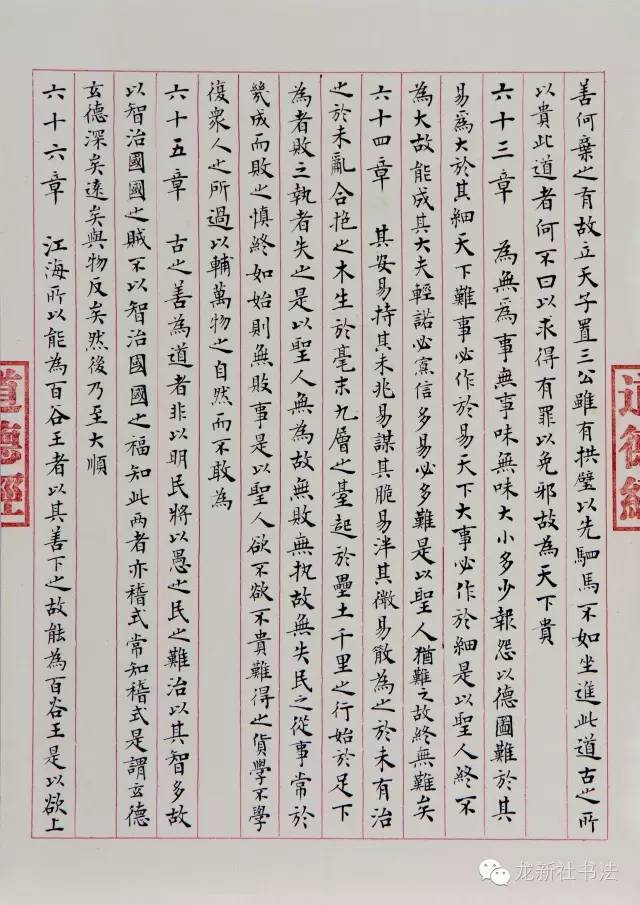 善何棄之有故立天子置三公雖有拱璧以先駟馬不如坐進此道古之所
以貴此道者何不曰以求得有罪以免邪故為天下貴
六十三章 為無為事無事味無味大小多少報怨以德圖難於其
易為大於其細天下難事必作於易天下大事必作於細是以聖人終不
為大故能成其大夫輕諾必寡信多易必多難是以聖人猶難之故終無難矣
六十四章 其安易持其未兆易謀其脆易泮其微易散為之於未有治
之於未亂合抱之木生於毫末九層之臺起於壘土千里之行始於足下
為者敗之執者失之是以聖人無為故無敗無執故無失民之從事常於
幾成而敗之慎終如始則無敗事是以聖人欲不欲不貴難得之貨學不學
復衆人之所過以輔萬物之自然而不敢為
六十五章 古之善為道者非以明民將以愚之民之難治以其智多故
以智治國國之賊不以智治國國之福知此两者亦稽式常知稽式是謂玄德
玄德深矣遠矣與物反矣然後乃至大順
六十六章 江海所以能為百谷王者以其善下之故能為百谷王是以欲上
道德經
道德經
龙新社书法